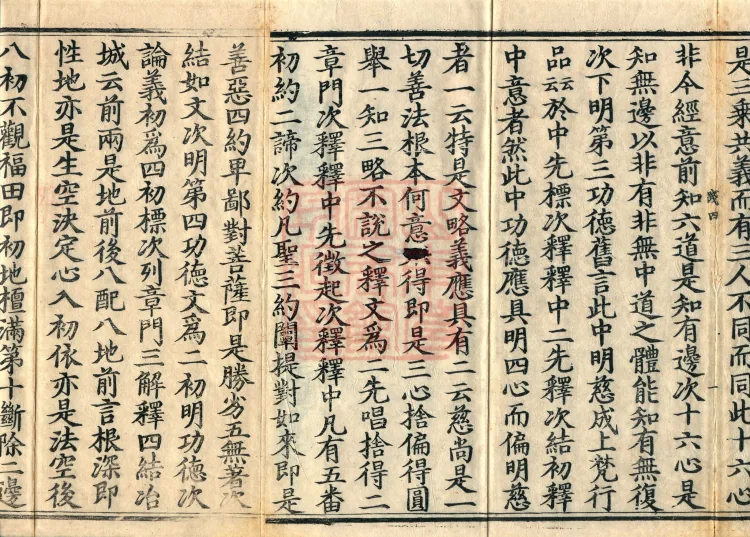 是三乘共義而有三人不同而同此十六心
非今經意前知六道是知有邊次十六心是
知無邊以非有非無中道之體能知有無復
次下明第三功德舊言此中明慈成上梵行
品云云於中先標次釋釋中二先釋次結初釋
中意者然此中功德應具明四心而偏明慈
者一云特是文略義應具有二云慈尚是一
切善法根本何意得即是三心捨偏得圓
舉一知三略不說之釋文為二先唱捨得二
章門次釋釋中先徵起次釋釋中凡有五番
初約二諦次約凡聖三約闡提對如來即是
善惡四約卑鄙對菩薩即是勝劣五無著次
結如文次明第四功德文為二初明功德次
論義初為四初標次列章門三解釋四結冶
城云前兩是地前後八配八地前言根深即
性地亦是生空決定心入初依亦是法空後
八初不觀福田即初地檀滿第十斷除二邊